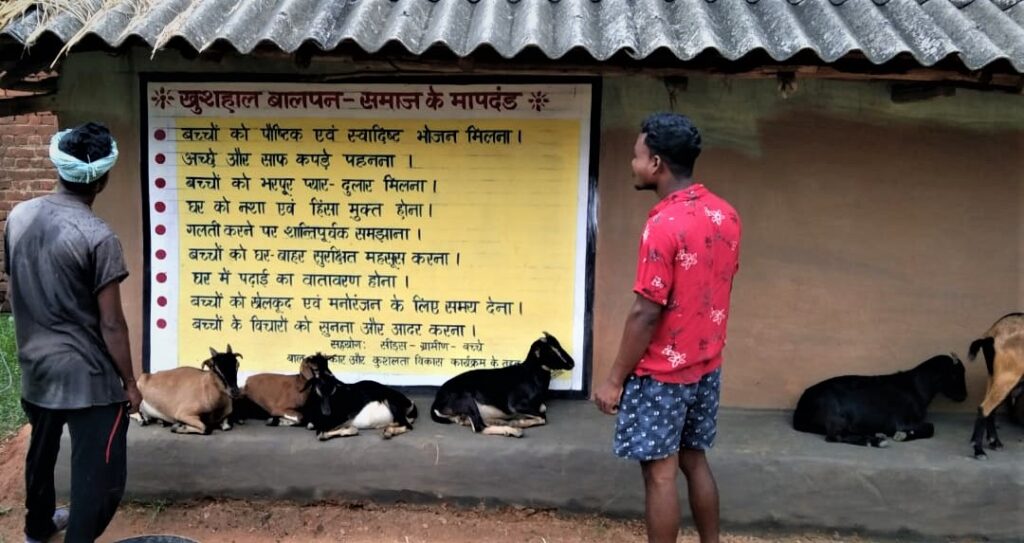 खुशहाल बालपन - समाज के मापदंड
बच्चों को पौष्टिक एवं स्वादिष्ट भोजन मिलना।
अच्छे और साफ कपड़े पहनना ।
बच्चों को भरपूर प्यार- दुलार मिलना।
घर को नशा एवं हिंसा मुक्त होना।
गलती करने पर शान्तिपूर्वक समझाना।
बच्चों को घर-बाहर सुरक्षित महसूस करना।
घर में पढ़ाई का वातावरण होना।
बच्चों को खेलकूद एवं मनोरंजन के लिए समय देना।
बच्चों के विचारों को सुनना और आदर करना।
सहयोग: सीड्स- ग्रामीण- बच्चे
बाल और कुशलता विकास कार्यक्रम के तहत